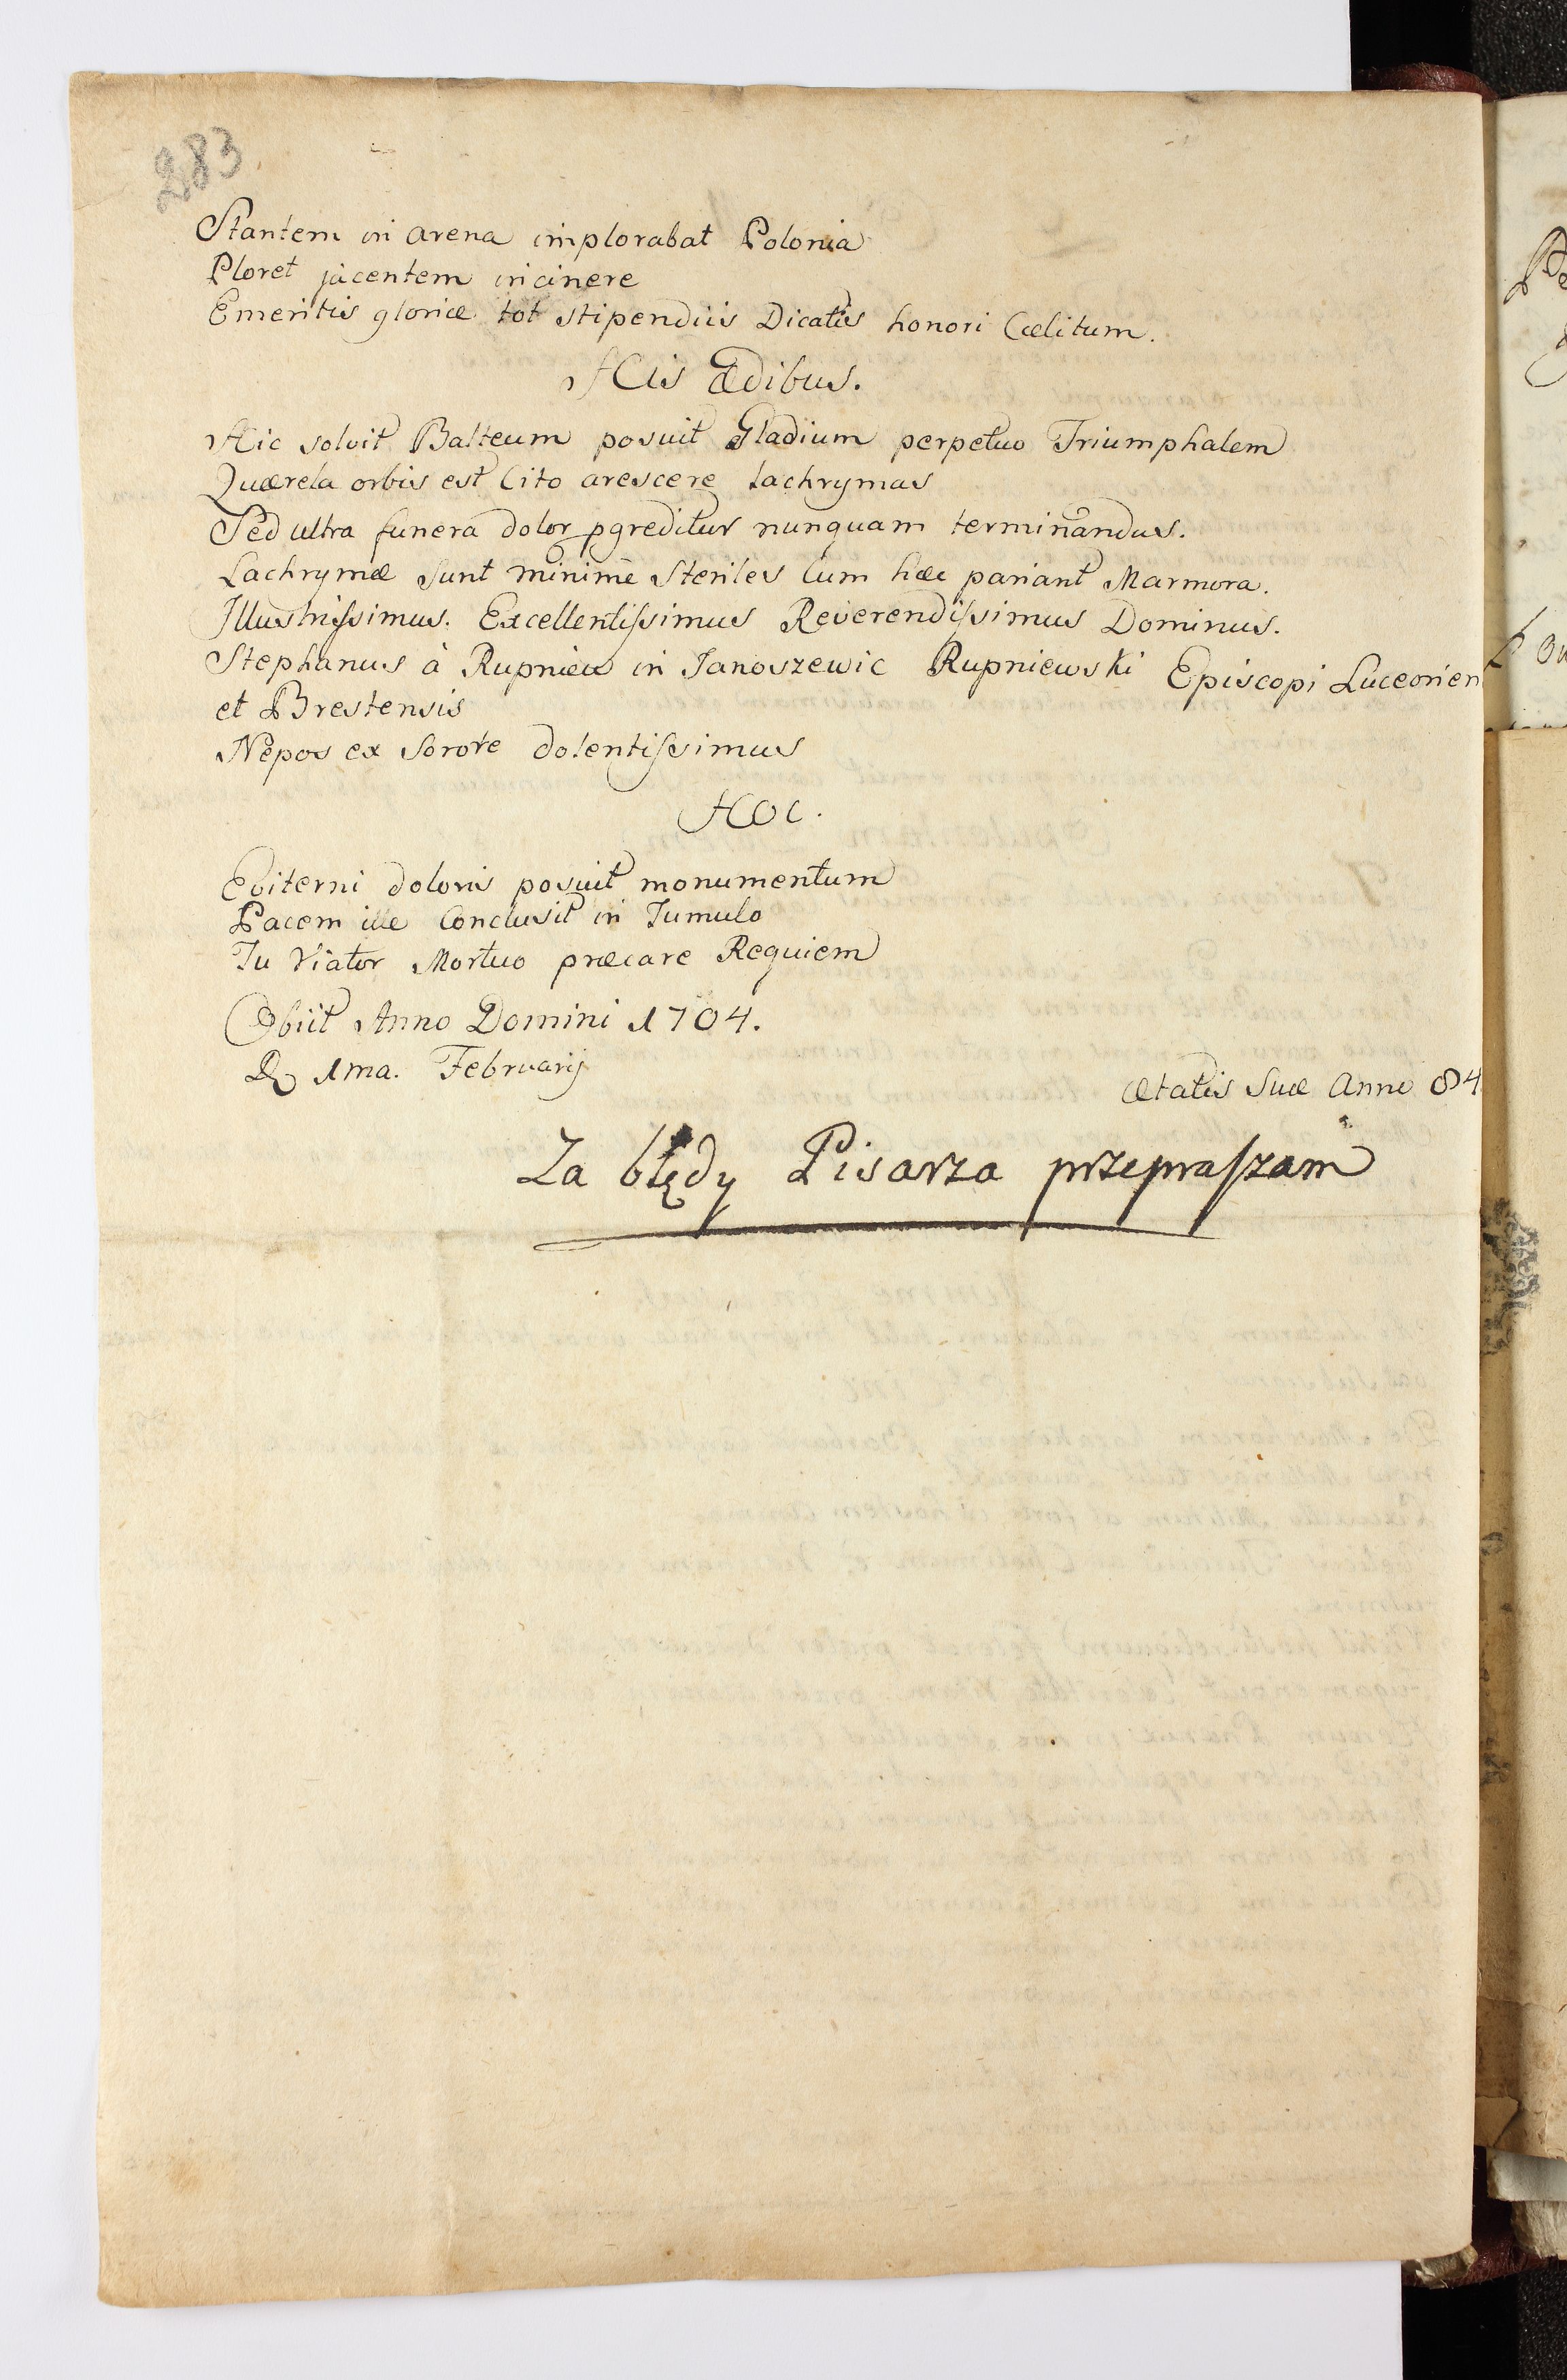 283
Stantem in arena implorabat Polonia
Ploret jacentem in cinere
Emeritis gloriæ tot stipendiis Dicatis honori Cælitum.
His Ædibus.
Hic solvit Balteum posuit Gladium perpetuo Triumphalem
Quærela orbis est Cito arescere lachrymas
Sed ultra funera dolor pgreditur nunquam terminandus.
Lachrymæ sunt minime steriles Cum hæc pariant Marmora.
Illustrissimus. Excellentissimus Reverendissimus Dominus.
Stephanus à Rupniew in Janoszewic Rupniewski Episcopi Luceorien
et Brestensis
Nepos ex Sorore dolentissimus
Hoc.
Eviterni doloris posuit monumentum
Pacem ille Conclusit in Tumulo
Tu Viator Mortuo præcare Requiem
Obiit Anno Domini 1704.
D 1ma. Februarij
ætatis Suæ Anni 84
Za błędy Pisarza przepraszam